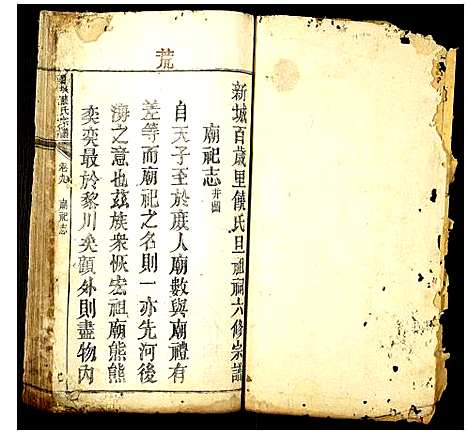 荒
新城百歲里饒氏旦祖祠六修宗譜
廟祀志 并圖
自天子至於庶人廟數與廟禮有
差等而廟祀之名則一亦先河後
海之意也茲族衆恢宏祖廟熊熊
奕奕最於黎川矣顧外則盡物内
氏宗譜
卷九
廟祀志